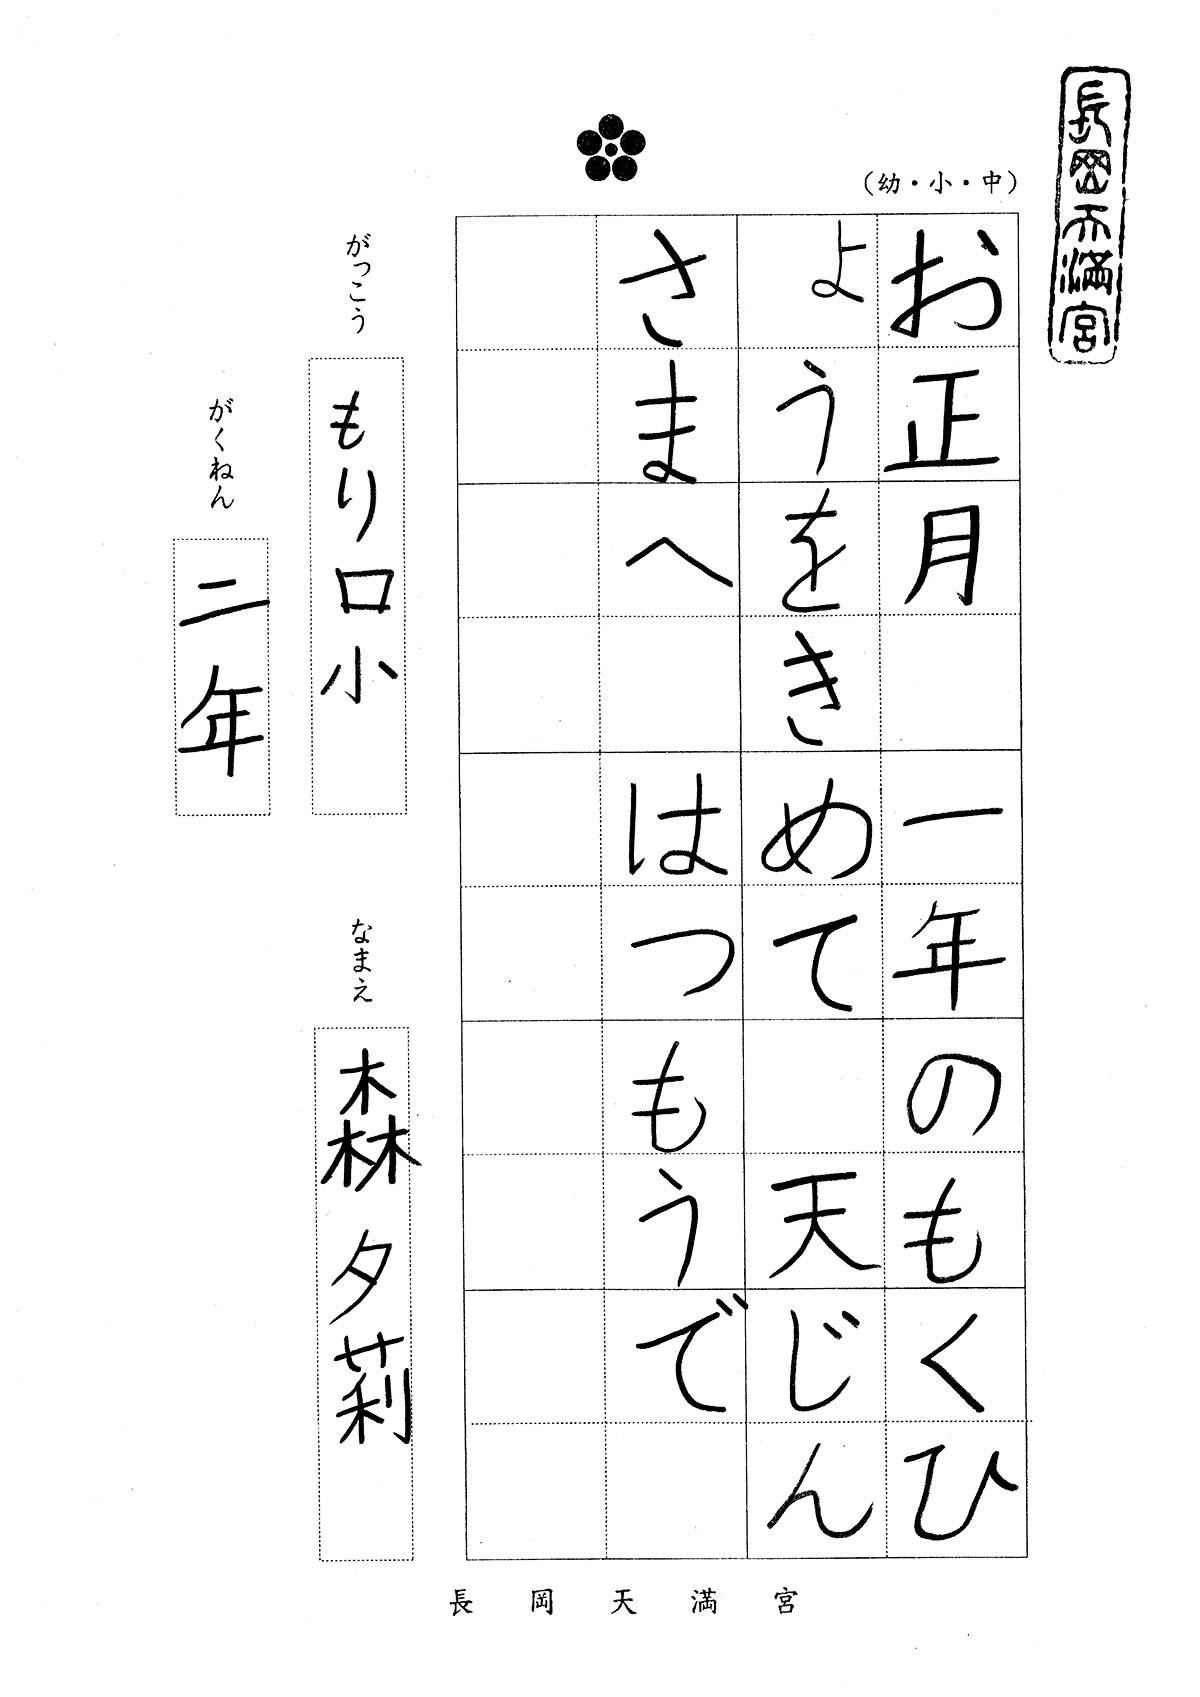 長岡天満宮
（幼・小・中）
お正月　一年のもくひ
ょうをきめて　天じん
さまへ　はつもうで
がっこう
もり口小
がくねん
二年
なまえ
森夕莉
長岡天満宮